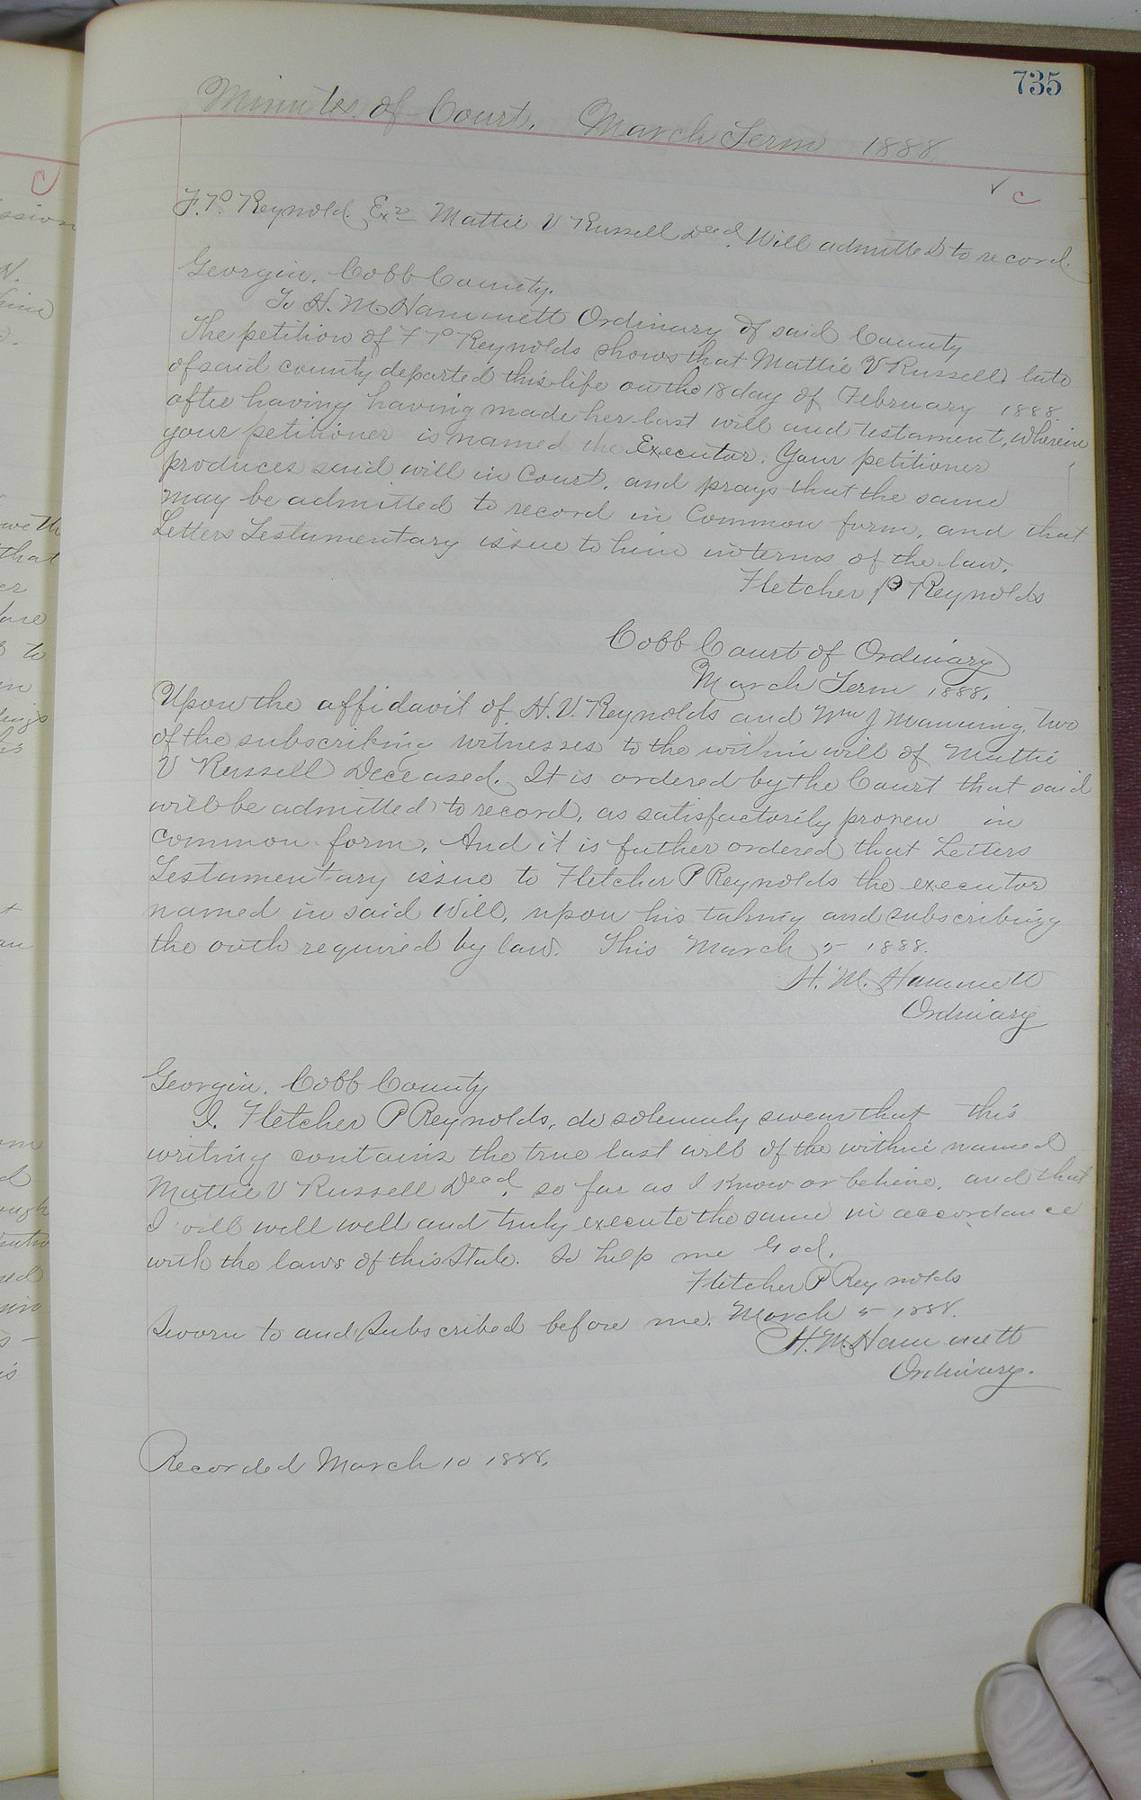 735
Minutes of Court, March Term 1888
✓ C
F. P. Reynolds Exr Mattie V Russell Decd. Will admitted to record.
Georgia, Cobb County.
To H. M. Hammett Ordinary of said County
The petition of F P Reynolds shows that Mattie V Russell late
of said county departed this life on the 18 day of February 1888
after having having made her last will and testament, wherein
your petitioner is named the Executor. Your petitioner
produces said will in Court, and prays that the same
may be admitted to record in Common form, and that
Letters Testamentary issue to him in terms of the law.
Fletcher P Reynolds
Cobb Court of Ordinary
March Term 1888.
Upon the affidavit of H. V. Reynolds and Wm J Manning, two
of the subscribing witnesses to the within will of Mattie
V Russell Deceased. It is ordered by the Court that said
will be admitted to record, as satisfactorily proven in
common form. And it is futher ordered that Letters
Testamentary issue to Fletcher P Reynolds the executor
named in said Will, upon his taking and subscribing
the oath required by law. This March 5 1888.
H. M. Hammett
Ordinary
Georgia, Cobb County
I, Fletcher P Reynolds, do solemnly swear that this
writing contains the true last will of the within named
Mattie V Russell Decd, so far as I know or believe, and that
I will well and truly execute the same in accordance
with the laws of this State. So help me God.
Fletcher P Reynolds
Sworn to and Subscribed before me. March 5 1888.
H. M. Hammett
Ordinary.
Recorded March 10 1888.